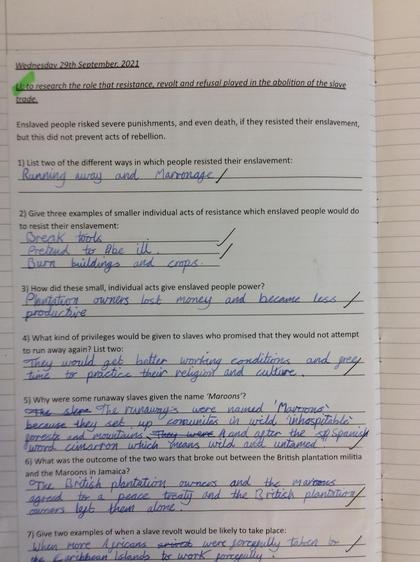 Wednesday 29th September, 2021
LI: to research the role that resistance, revolt and refusal played in the abolition of the slave
trade.
Enslaved people risked severe punishments, and even death, if they resisted their enslavement,
but this did not prevent acts of rebellion.
1) List two of the different ways in which people resisted their enslavement:
Running away and Marronage
2) Give three examples of smaller individual acts of resistance which enslaved people would do
to resist their enslavement:
Break tools
Pretend to be ill.
Burn buildings and crops.
3) How did these small, individual acts give enslaved people power?
Plantation owners lost money and became less
productive
4) What kind of privileges would be given to slaves who promised that they would not attempt
to run away again? List two:
They would get better working conditions and free
time to practice their religion and culture.
5) Why were some runaway slaves given the name 'Maroons'?
The runaways were named 'Maroons'
because they set up comunites in wild 'inhospitable'
forests and mountains. They were And after the Spanish
word cimarron which means wild and untamed
6) What was the outcome of the two wars that broke out between the British plantation militia
and the Maroons in Jamaica?
The British plantation owners and the maroons
agreed for a peace treaty and the British plantation
owners left them alone.
7) Give two examples of when a slave revolt would be likely to take place:
When more Africans were forcefully taken to
the Caribbean Islands to work forcefully.